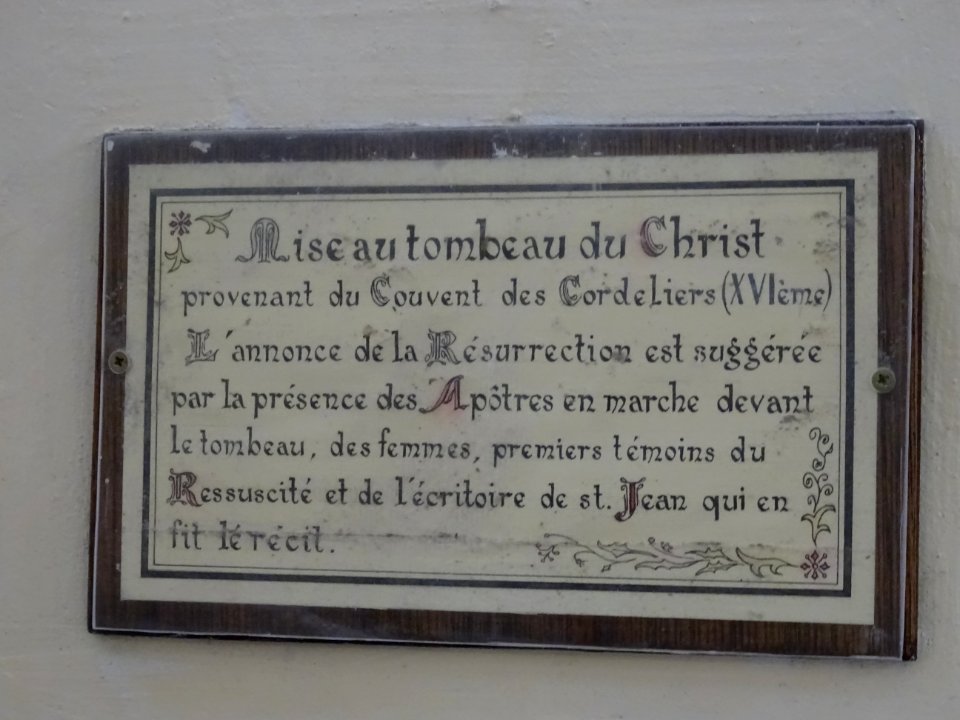 Mise au tombeau du Christ
provenant du Couvent des Cordeliers (XVIème)
L'annonce de la Résurrection est suggérée
par la présence des Apôtres en marche devant
le tombeau, des femmes, premiers témoins du
Ressuscité et de l'écritoire de st. Jean qui en
fit lé récit.